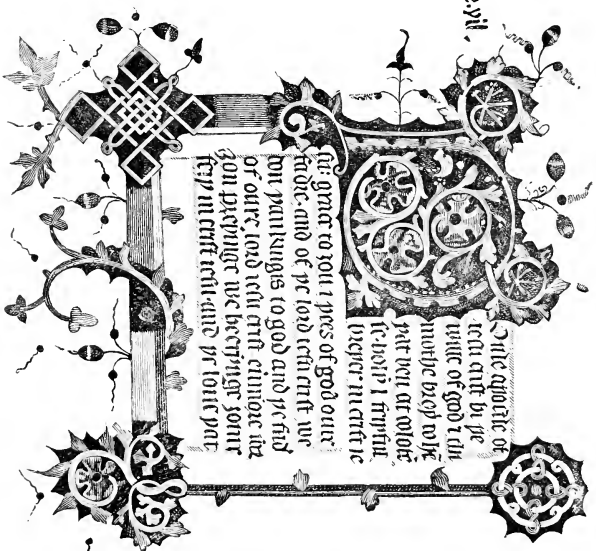 Oule apostle of
iesu crist bi þe
wille of god & ti
mothe broþ to hē
þat ben at colose
hooli & feiþful
breþer in crist ie
su: grace to ȝou & pees of god oure
fadir, and of þe lord iesu crist we
don þankingis to god and þe fad
of oure lord iesu crist eumore for
ȝou preyinge we heeringe ȝoure
feiþ in crist iesu and þe loue þat